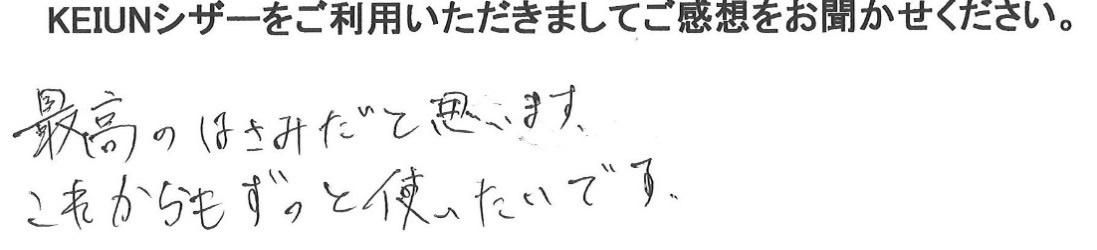 KEIUNシザーをご利用いただきましてご感想をお聞かせください。
最高のはさみだと思います、
これからもずっと使いたいです。